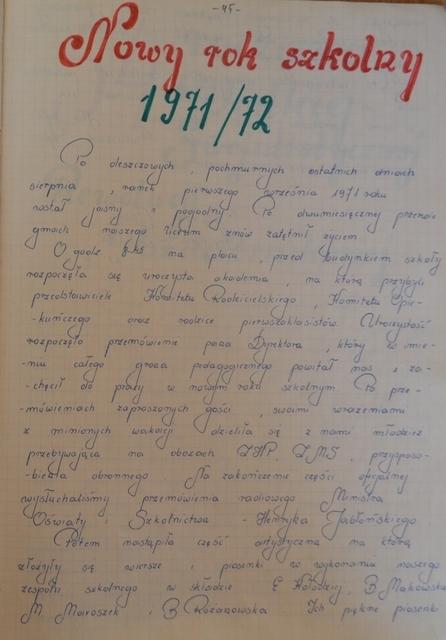 - 45 -
Nowy rok szkolny
1971/72
Po deszczowych, pochmurnych ostatnich dniach
sierpnia, ranek pierwszego września 1971 roku
nastał jasny i pogodny. Po dwumiesięcznej przerwie
gmach naszego liceum znów zatętnił życiem.
O godz. na placu, przed budynkiem szkoły
rozpoczęła się uroczysta akademia, na którą przybyli
przedstawiciele Komitetu Rodzicielskiego, Komitetu Opie-
-kuńczego oraz rodzice pierwszoklasistów. Uroczystość
rozpoczęło przemówienie pana Dyrektora, który w imie-
-niu całego grona pedagogicznego powitał nas i za-
-chęcił do pracy w nowym roku szkolnym. Po prze-
-mówieniach zaproszonych gości, swoimi wrażeniami
z minionych wakacji dzieliła się z nami młodzież
przebywająca na obozach ZHP, ZMS, przysposo-
-bienia obronnego. Na zakończenie części oficjalnej
wysłuchaliśmy przemówienia radiowego Ministra
Oświaty i Szkolnictwa - Henryka Jabłońskiego
Potem nastąpiła część artystyczna na którą
złożyły się wiersze i piosenki w wykonaniu naszego
zespołu szkolnego w składzie E. Kołodziej, B. Makowska
M. Maroszek, B. Rożanowska Ich piękne piosenki